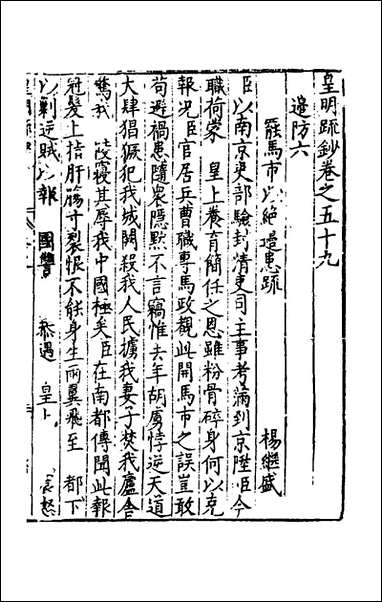 皇明疏鈔卷之五十九
邊防六
罷馬市以絕邊患疏 楊繼盛
臣以南京吏部驗封清吏司主事考滿到京陞臣今
職荷蒙 皇上養育簡任之恩雖粉骨碎身何以克
報况臣官居兵曹職專馬政觀此開馬市之誤豈敢
苟避禍患隨衆隱默不言竊惟去年胡虜悖逆天道
大肆猖獗犯我城闕殺我人民擄我妻子焚我廬舍
驚我 陵寢其辱我中國極矣臣在南都傳聞此報
冠髮上指肝腸寸裂恨不能身生兩翼飛至 都下
以剿逆賊以報 國讐 恭遇 皇上